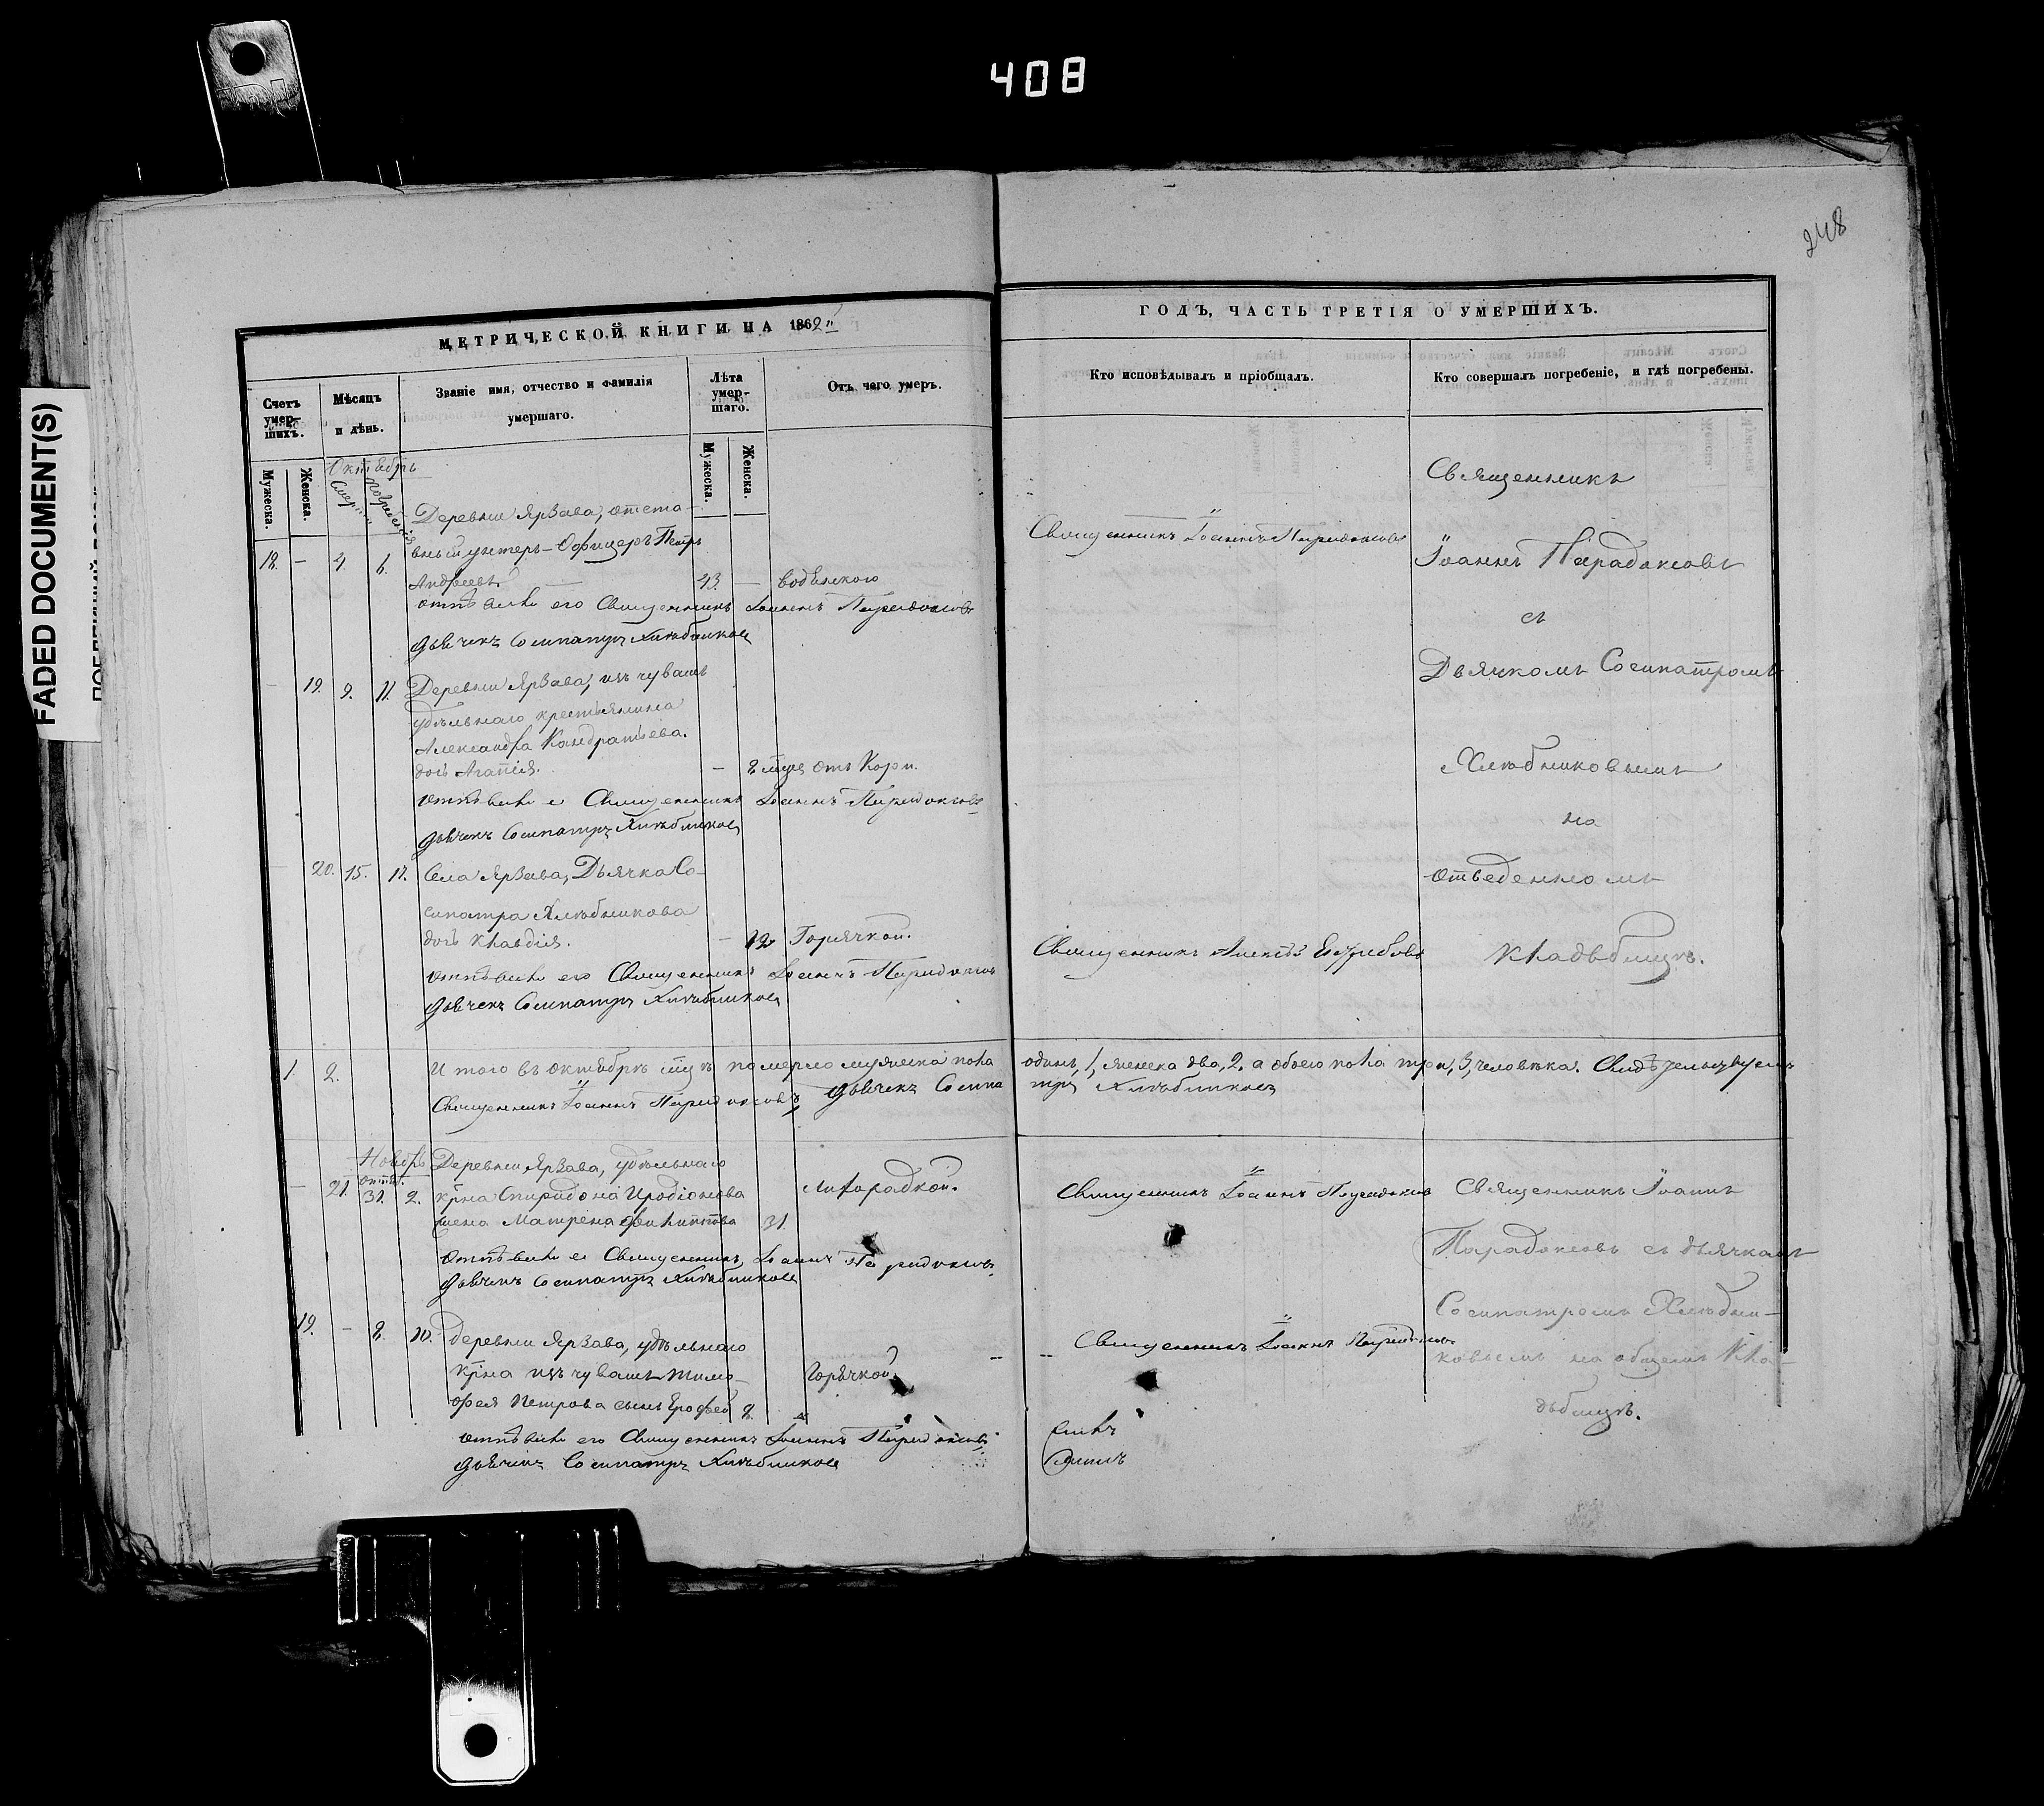 408
248
FADED DOCUMENT(S)
МЕТРИЧЕСКОЙ КНИГИ НА 1862
ГОДЪ, ЧАСТЬ ТРЕТІЯ О УМЕРШИХЪ.
Счетъ умер- шихъ.
Мѣсяцъ и день.
Званіе имя, отчество и фамилія умершаго.
Лѣта умер- шаго.
Отъ чего умеръ.
Кто исповѣдывалъ и пріобщалъ.
Кто совершалъ погребеніе, и гдѣ погребены.
Мужеска. Женска.
Октябрь
Смерти погребенія
Мужеска. Женска.
Деревни Ярзава, отста-
18. — 4. 6. вный унтеръ-Офицеръ Петръ
Андреевъ. 43. — водянкою
Священникъ Іоаннъ Парадоксовъ
отпѣвали его Священникъ Іоаннъ Парадоксовъ
дьячекъ Сосипатръ Хлѣбниковъ
— 19. 9. 11. Деревни Ярзава, изъ чувашъ
удѣльнаго крестьянина
Александра Кондратьева.
дочь Агапія. — 8 отъ Кори.
отпѣвали ее Священникъ Іоаннъ Парадоксовъ
дьячекъ Сосипатръ Хлѣбниковъ
— 20. 15. 17. Села Ярзава, Дьячка Со-
сипатра Хлѣбникова
дочь Клавдія. — 12 Горячкой.
Священникъ Алексѣй
отпѣвали его Священникъ Іоаннъ Парадоксовъ
дьячекъ Сосипатръ Хлѣбниковъ
Священникъ
Іоаннъ Парадоксовъ
съ
Дьячкомъ Сосипатромъ
Хлѣбниковымъ
на
отведенномъ
кладбищѣ.
1 2. Итого въ октябрѣ мцѣ померло мужеска пола одинъ, 1, женска два, 2. а обоего пола три, 3, человѣка. Свидѣтельствуемъ
Священникъ Іоаннъ Парадоксовъ, дьячекъ Сосипатръ Хлѣбниковъ
Ноябрь
Деревни Ярзава, удѣльнаго
— 21. октяб. 31. 2. крна Спиридона Иродіонова
жена Матрена Филиппова 31.
Лихорадкой.
Священникъ Іоаннъ Парадоксовъ
отпѣвали ее Священникъ Іоаннъ Парадоксовъ,
дьячекъ Сосипатръ Хлѣбниковъ
19. — 8. 10. деревни Ярзава, удѣльнаго
крна изъ чувашъ Тимо-
фея Петрова сынъ Ерофей 8.
Горячкой
Священникъ Іоаннъ Парадоксовъ
отпѣвали его Священникъ Іоаннъ Парадоксовъ
дьячекъ Сосипатръ Хлѣбниковъ
Священникъ Іоаннъ
Парадоксовъ съ дьячкомъ
Сосипатромъ Хлѣбни-
ковымъ на общемъ кла-
дбищѣ.